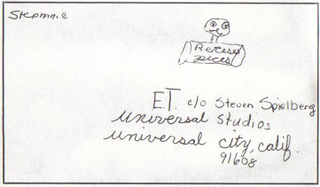 Reeses
pieces
E.T. c/o Steven Spielberg
Universal Studios
Universal City, Calif.
91608